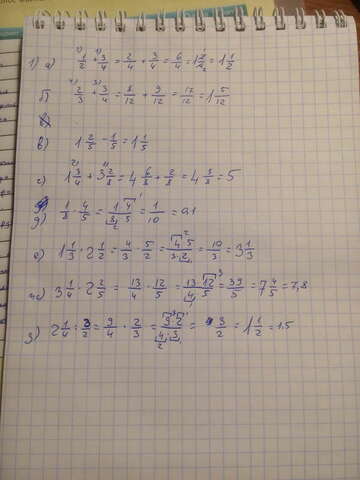 1) а) 1/2 + 3/4 = 2/4 + 3/4 = 6/4 = 1 2/4 = 1 1/2
б) 2/3 + 3/4 = 8/12 + 9/12 = 17/12 = 1 5/12
в) 1 2/5 - 1/5 = 1 1/5
г) 1 3/4 + 3 2/8 = 4 6/8 + 2/8 = 4 8/8 = 5
д) 1/8 · 4/5 = 1·4/8·5 = 1/10 = 0,1
е) 1 1/3 · 2 1/2 = 4/3 · 5/2 = 4·5/3·2 = 10/3 = 3 1/3
ж) 3 1/4 · 2 2/5 = 13/4 · 12/5 = 13·12/4·5 = 39/5 = 7 4/5 = 7,8
з) 2 1/4 : 3/2 = 9/4 · 2/3 = 9·2/4·3 = 3/2 = 1 1/2 = 1.5